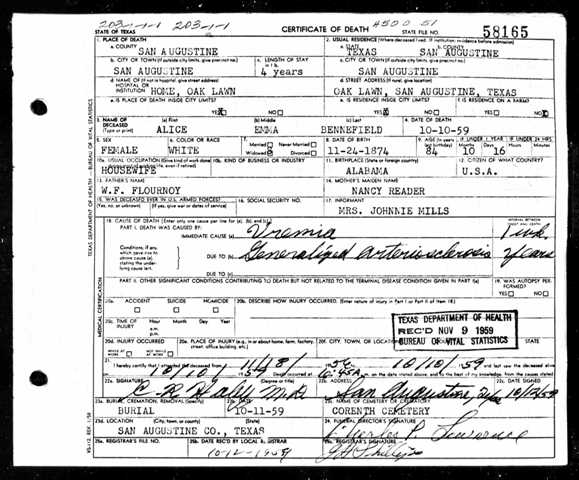 203-1-1 203-1-1
#500 51
STATE OF TEXAS CERTIFICATE OF DEATH STATE FILE NO. 58165
1. PLACE OF DEATH 2. USUAL RESIDENCE (Where deceased lived. If institution: residence before admission)
a. COUNTY a. STATE b. COUNTY
SAN AUGUSTINE TEXAS SAN AUGUSTINE
b. CITY OR TOWN (If outside city limits, give precinct no.) c. LENGTH OF STAY c. CITY OR TOWN (If outside city limits, give precinct no.)
SAN AUGUSTINE 4 years SAN AUGUSTINE
d. NAME OF (If not in hospital, give street address) HOSPITAL OR INSTITUTION d. STREET ADDRESS (If rural, give location)
HOME, OAK LAWN OAK LAWN, SAN AUGUSTINE, TEXAS
e. IS PLACE OF DEATH INSIDE CITY LIMITS? e. IS RESIDENCE INSIDE CITY LIMITS? f. IS RESIDENCE ON A FARM?
YES NO YES NO YES NO
3. NAME OF DECEASED (Type or print) (a) First (b) Middle (c) Last 4. DATE OF DEATH
ALICE EMMA BENNEFIELD 10-10-59
5. SEX 6. COLOR OR RACE 7. Married Never Married Widowed Divorced 8. DATE OF BIRTH 9. AGE (In years last birthday) IF UNDER 1 YEAR IF UNDER 24 HRS.
FEMALE WHITE 11-24-1874 84 10 16
10a. USUAL OCCUPATION (Give kind of work done 10b. KIND OF BUSINESS OR INDUSTRY 11. BIRTHPLACE (State or foreign country) 12. CITIZEN OF WHAT COUNTRY?
HOUSEWIFE ALABAMA U.S.A.
13. FATHER'S NAME 14. MOTHER'S MAIDEN NAME
W.F. FLOURNOY NANCY READER
15. WAS DECEASED EVER IN U.S. ARMED FORCES? 16. SOCIAL SECURITY NO. 17. INFORMANT
(Yes, no, or unknown) (If yes, give war or dates of service) MRS. JOHNNIE MILLS
18. CAUSE OF DEATH [Enter only one cause per line for (a), (b), and (c).] INTERVAL BETWEEN
PART I. DEATH WAS CAUSED BY:
IMMEDIATE CAUSE (a) Uremia 1 wk.
Conditions, if any, which gave rise to above cause (a), stating the underlying cause last. DUE TO (b) Generalized arteriosclerosis years
DUE TO (c)
PART II. OTHER SIGNIFICANT CONDITIONS CONTRIBUTING TO DEATH BUT NOT RELATED TO THE TERMINAL DISEASE CONDITION GIVEN IN PART I(a) 19. WAS AUTOPSY PERFORMED?
YES NO
20a. ACCIDENT SUICIDE HOMICIDE 20b. DESCRIBE HOW INJURY OCCURRED. (Enter nature of injury in Part I or Part II of item 18.)
20c. TIME OF INJURY Hour Month Day Year
a.m.
p.m.
TEXAS DEPARTMENT OF HEALTH
REC'D NOV 9 1959
BUREAU OF VITAL STATISTICS
20d. INJURY OCCURRED 20e. PLACE OF INJURY (e.g., in or about home, farm, factory, street, office building, etc.) 20f. CITY, TOWN, OR LOCATION
WHILE AT WORK NOT WHILE AT WORK
21. I hereby certify that I attended the deceased from 11/18/ 56 to 10/10/59
10/10/ 59 Death occurred at 6:45A m.
22a. SIGNATURE 22b. ADDRESS 22c. DATE SIGNED
M.D. San Augustine, Tex 10/12/59
23a. BURIAL, CREMATION, REMOVAL (Specify) 23b. DATE 23c. NAME OF CEMETERY OR CREMATORY
BURIAL 10-11-59 CORENTH CEMETERY
23d. LOCATION 24. FUNERAL DIRECTOR'S SIGNATURE
SAN AUGUSTINE CO., TEXAS Charles P. Lawrence
25a. REGISTRAR'S FILE NO. 25b. DATE REC'D BY LOCAL REGISTRAR 25c. REGISTRAR'S SIGNATURE
10-12-1959
TEXAS DEPARTMENT OF HEALTH — BUREAU OF VITAL STATISTICS
MEDICAL CERTIFICATION